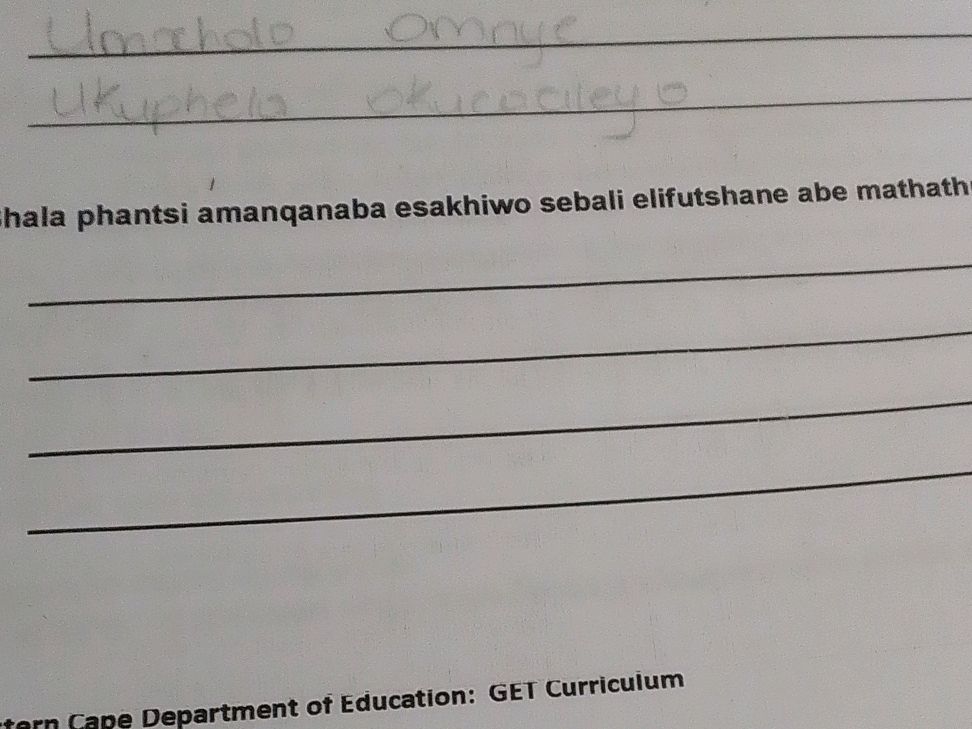 Umxholo omnye
Ukuphela okucacileyo
hala phantsi amanqanaba esakhiwo sebali elifutshane abe mathath
tern Cape Department of Education: GET Curriculum